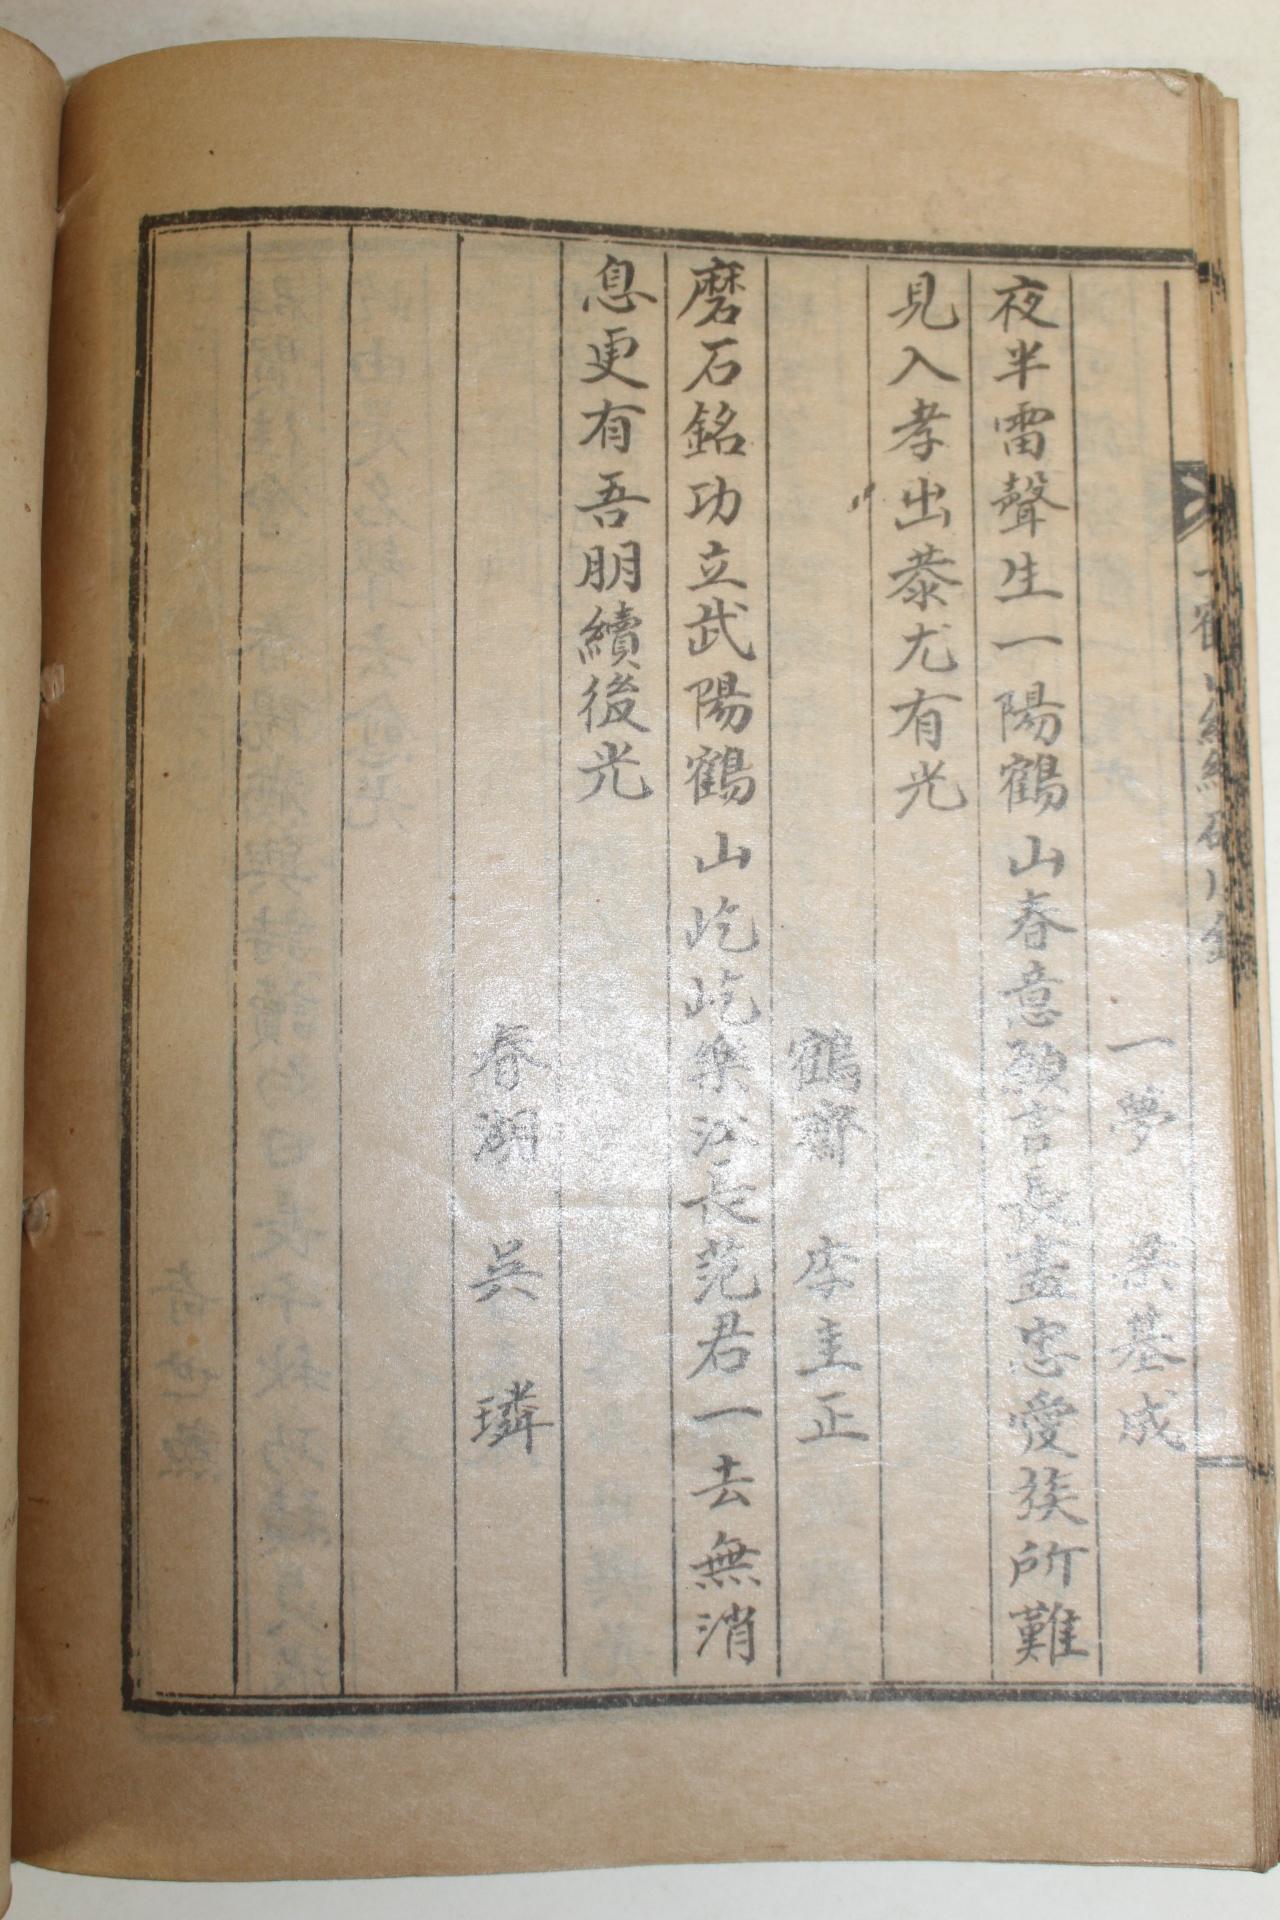 一夢 梁基成
夜半雷聲生一陽鶴山春意願言長盡忠愛族所難
見入孝出恭尤有光
鶴齋 李圭正
磨石銘功立武陽鶴山屹屹樂泌長范君一去無消
息更有吾朋續後光
春湖 吳 璘